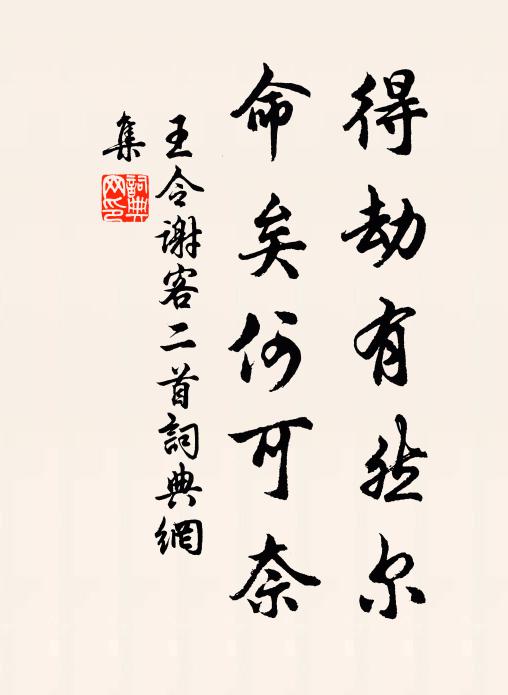 得劫有然尔
命矣何可奈
王令谢客二首詞典網
集
詞典网印